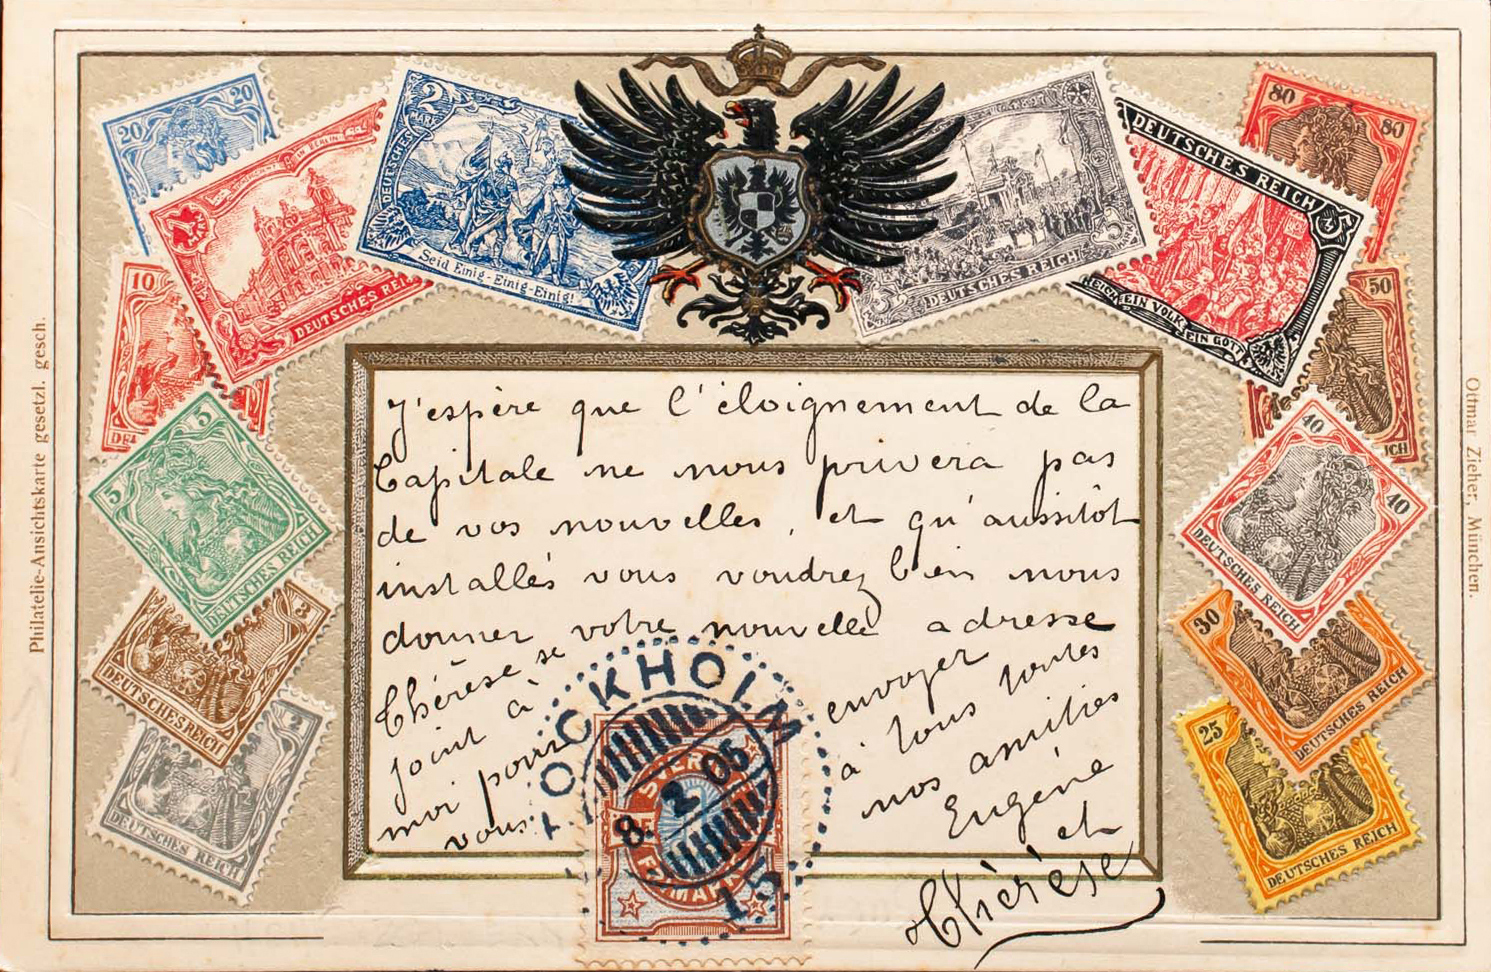 20
20
MARK
IN BERLIN
DEUTSCHES REI
2
MARK
DEUTSCHES
Seid Einig-Einig-Einig!
1897
5
DEUTSCHES REICH
DEUTSCHES REICH
EIN VOLK EIN GOTT
80
80
10
DE
50
ICH
5
5
DEUTSCHES REICH
40
40
DEUTSCHES REICH
3
DEUTSCHES REICH
30
DEUTSCHES REICH
2
DEUTSCHES REICH
25
DEUTSCHES REICH
Philatelie-Ansichtskarte gesetzl. gesch.
Ottmar Zieher, München.
J'espère que l'éloignement de la
Capitale ne nous privera pas
de vos nouvelles, et qu'aussitôt
installés vous voudrez bien nous
donner votre nouvelle adresse
Thérèse se
joint à
moi pour
vous
envoyer
à tous toutes
nos amitiés
Eugène
et
Thérèse
STOCKHOLM
8. 2 05
15